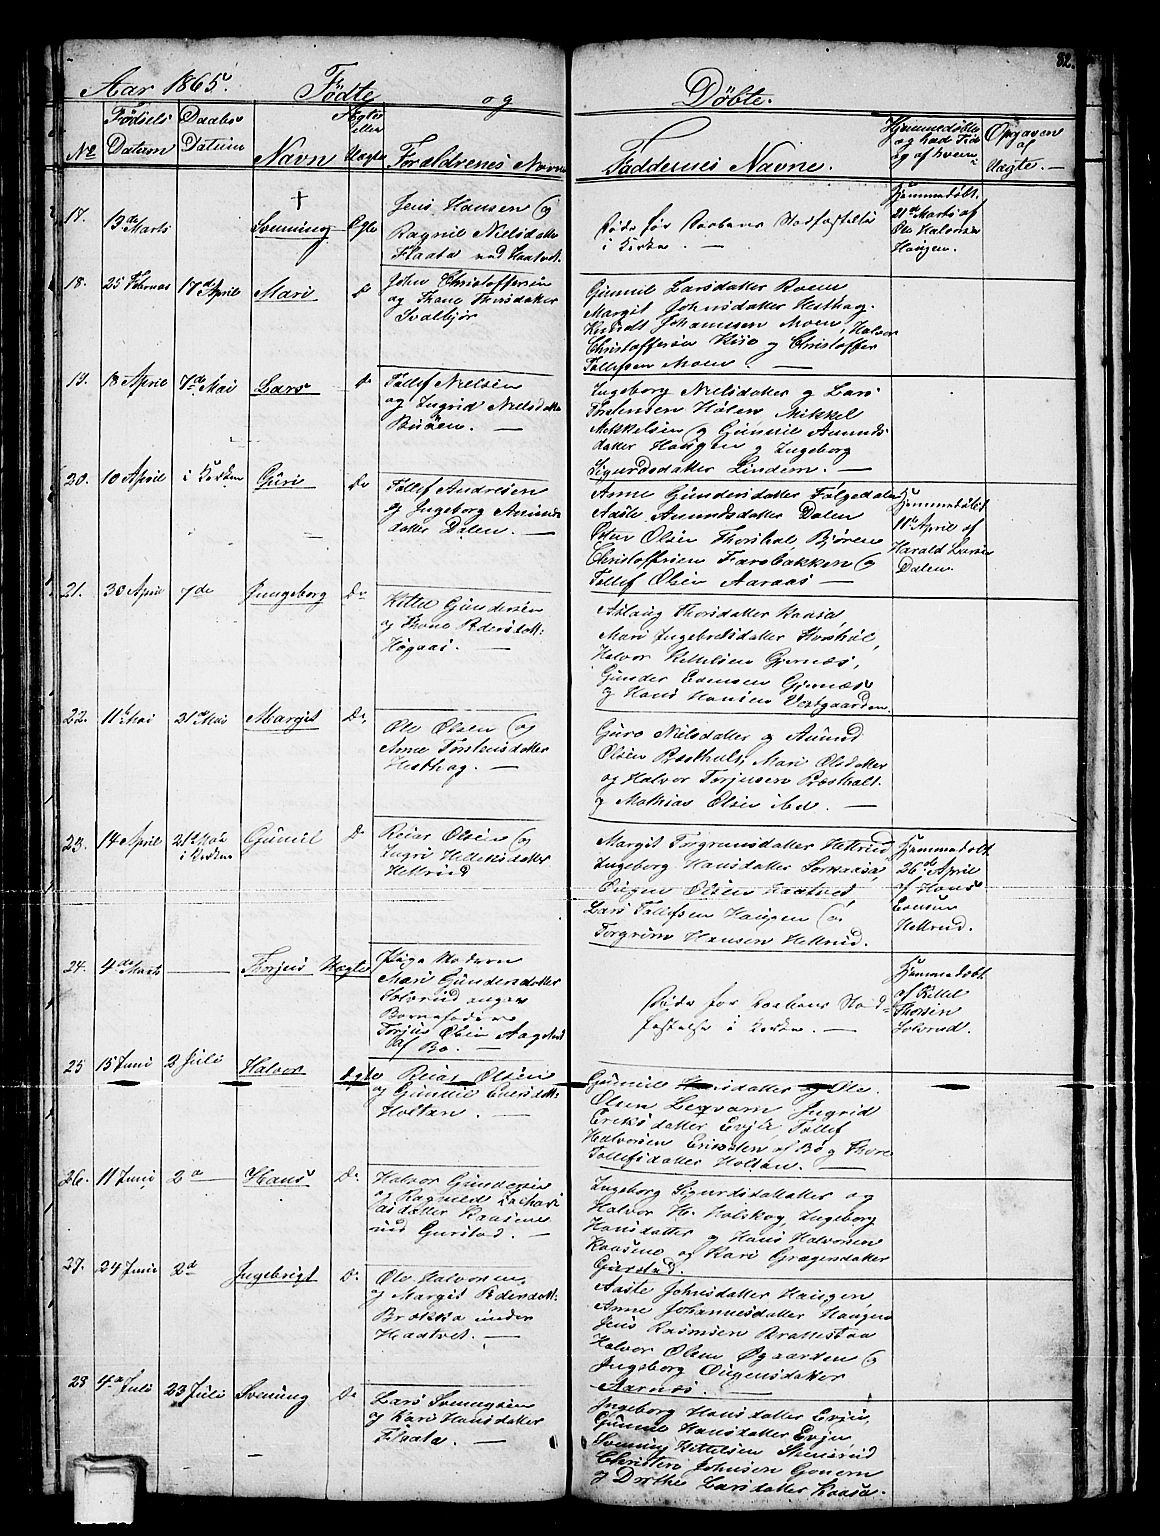 82.
Aar 1865. Fødte og Døbte.
No Fødsels Datum Daabs Datum Navn Ægte eller Uægte Forældrenes Navne Faddernes Navne. Hjemmedøbte og hvad Tid og af hvem Opgaven af Uægte. —
17. 19de Marts Svenning Egte
Jens Hansen og
Ragnil Nielsdatter
Flaata ved Haatvet.
Døde før Daabens Stadfæstelse
i Kirken. —
Hjemmedøbt
21de Marts af
Ole Halvorsen
Haugen.
18. 25 Februar 17de April Mari Do
John Christoffersen
og Thone Thorsdatter
Gunnil Larsdatter Roenn
Margit Johnsdatter Hesthag.
Johannesen Moen, Halvor
Christoffersen og Christoffer
Tollefsen Moen. —
19. 18 April 7de Mai Lars Do
Tollef Nielsen
og Ingrid Nielsdatter
—
Ingeborg Nielsdatter og Lars
Torstensen Holen Mikkel
Mikkelsen og Gunnil Amunds
datter Haugen og Ingeborg
Sigurdsdatter Lindem. —
20. 10 April i Kirken Guri Do
Tollef Andresen
og Ingeborg Amunds
datter Dalen. —
Anne Gundersdatter Folgedalen
Aasle Amundsdatter Dalen
Olsen
Christoffersen Farobakken og
Tollef Olsen Aaraas —
Hjemmedøbt
11te April af
Harald Larsen
Dalen.
21. 30 April 7de Ingeborg Do
Kittel Gundersen
og Thone Pedersdatt:
Høgaas. —
Aslaug Thorsdatter Kaasa
Mari Ingebretsdatter
Halvor Kittelsen Gjernæs,
Gunder Evensen Gjernæs
og Hans Hansen Vestgaarden.
22. 11te Mai 21de Mai Margit Do
Ole Olsen og
Anne Torstensdatter
Hesthag. —
Guro Nilsdatter og Amund
Olsen Mari Olsdatter
og Halvor Torjusen
og Mathias Olsen ibd. —
23. 14 April 21de Mai i Kirken Gunnil Do
Reiar Olsen og
Ingri Helleksdatter
Hellerud
Margit Torgrimsdatter Hellerud,
Ingeborg Hansdatter
Olsen Haatved,
Lars Tollefsen Haugen og
Torgrim Hansen Hellerud.
Hjemmedøbt
26de April
af Hans
Evensen
Hellerud.
24. 4de Marts — Torjus Uægte
Pige Moderen
Mari Gundersdatter
Solverud angav
Barnefaderen
Torjus Olsen
af Bø. —
Døde før Daabens Stad-
fæstelse i Kirken. —
Hjemmedøbt
af Kittel
Thorsen
Solverud.
25 15 Juni 2 Juli Halvor Egte
Reiar Olsen
og Gunnil Evensdatt
Holtan. —
Gunnil Hansdatter og Ole
Olsen Ingrid
Eriksdatter Evju Tollef
Halvorsen af Bø og Thone
Tollefsdatter Holtan. —
26. 11 Juni 2d — Hans Do
Halvor Gundersen
og Ragnild Zachari
asdatter Kaasene
ved Gurstad. —
Ingeborg Sigurdsdatter og
Halvor H. Holskog, Ingeborg
Hansdatter og Hans Halvorsen
Kaasene og Kari Gregersdatter
Gurstad. —
27. 24 Juni 2d Ingebrigt Do
Ole Halvorsen
og Margit Pedersdatt:
Brekka under
Haatvet. —
Aaste Johnsdatter Haugen,
Anne Johannesdatter Haugen
Jens Rasmusen Brattestaa
Halvor Olsen Øgaarden og
Ingeborg
Aarnæs. —
28 4de Juli 23 Juli Svening Do
Lars Svenugsen
og Kari Hansdatter
Flaata. —
Ingeborg Hansdatter Evju,
Gunnil Hansdatter Evju
Svennung Kittelsen
Christen Johnsen Gonern
og Dorthe Larsdatter Kaasa.